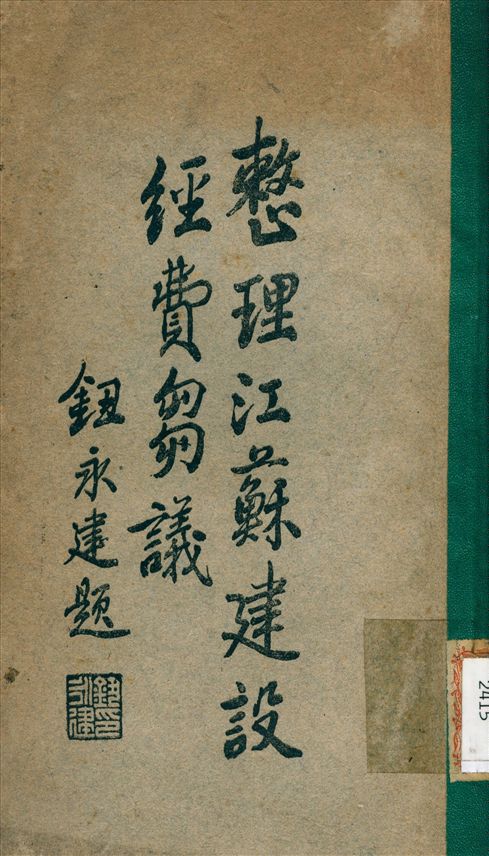 整理江蘇建設
經費芻議
鈕永建題
鈕永建印
2415